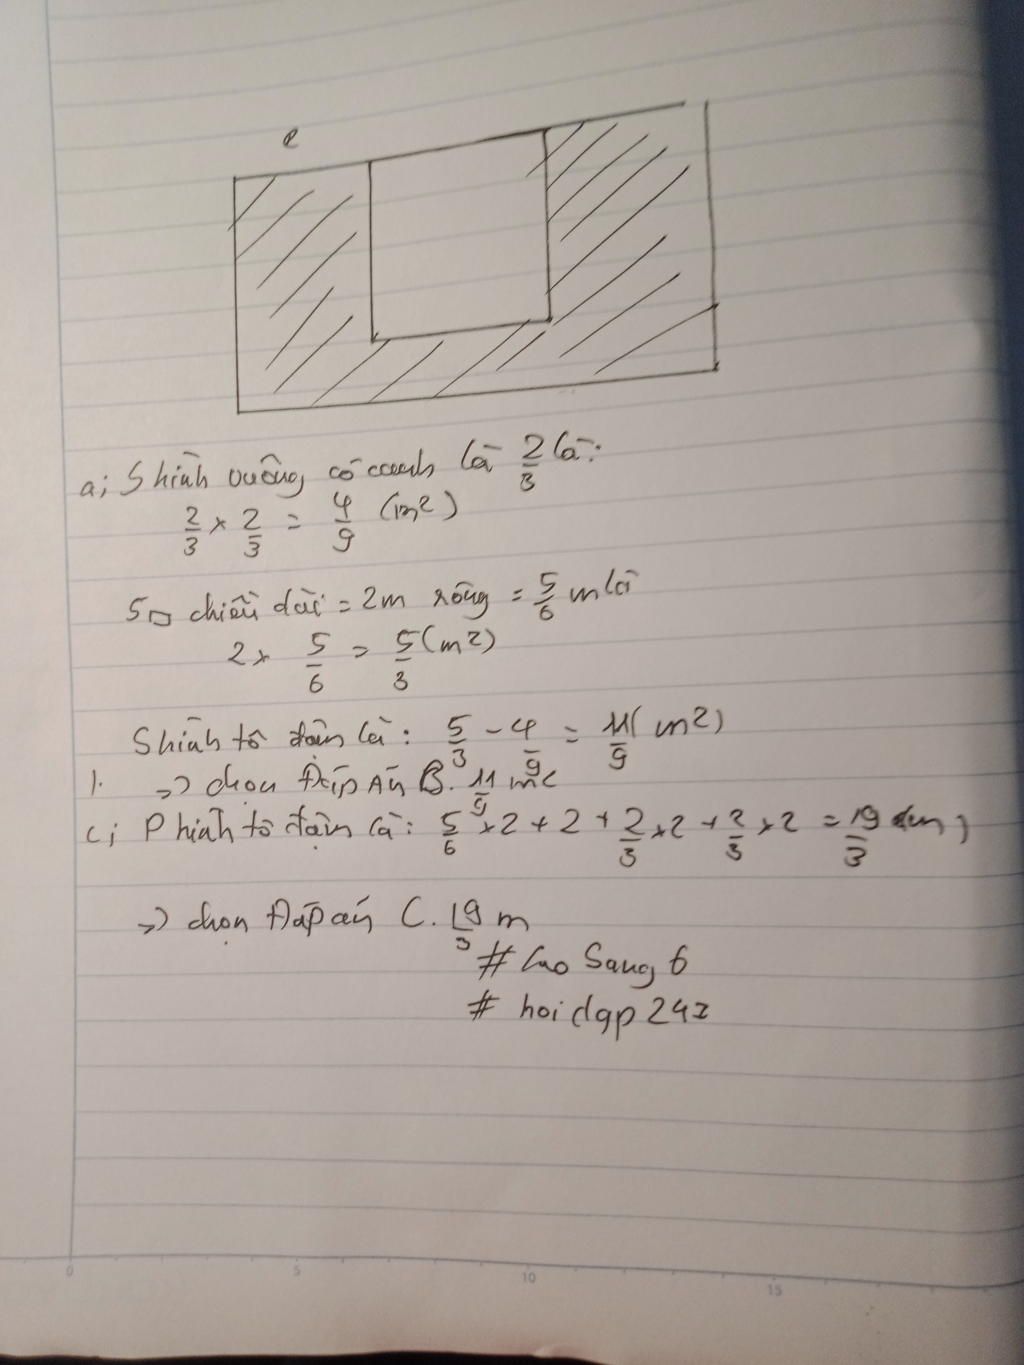 e
a; S hình vuông có cạnh là 2/3 là:
2/3 x 2/3 = 4/9 (m2)
S▭ chiều dài = 2m rộng = 5/6 m là
2 x 5/6 = 5/3 (m2)
S hình tô đậm là: 5/3 - 4/9 = 11/9 (m2)
=> chọn Đáp Án B. 11/9 m2
c; P hình tô đậm là: 5/6 x 2 + 2 + 2/3 x 2 + 2/3 x 2 = 19/3 (m)
=> chọn Đáp án C. 19/3 m
# Cao Sang 6
# hoidap247
0 5 10 15